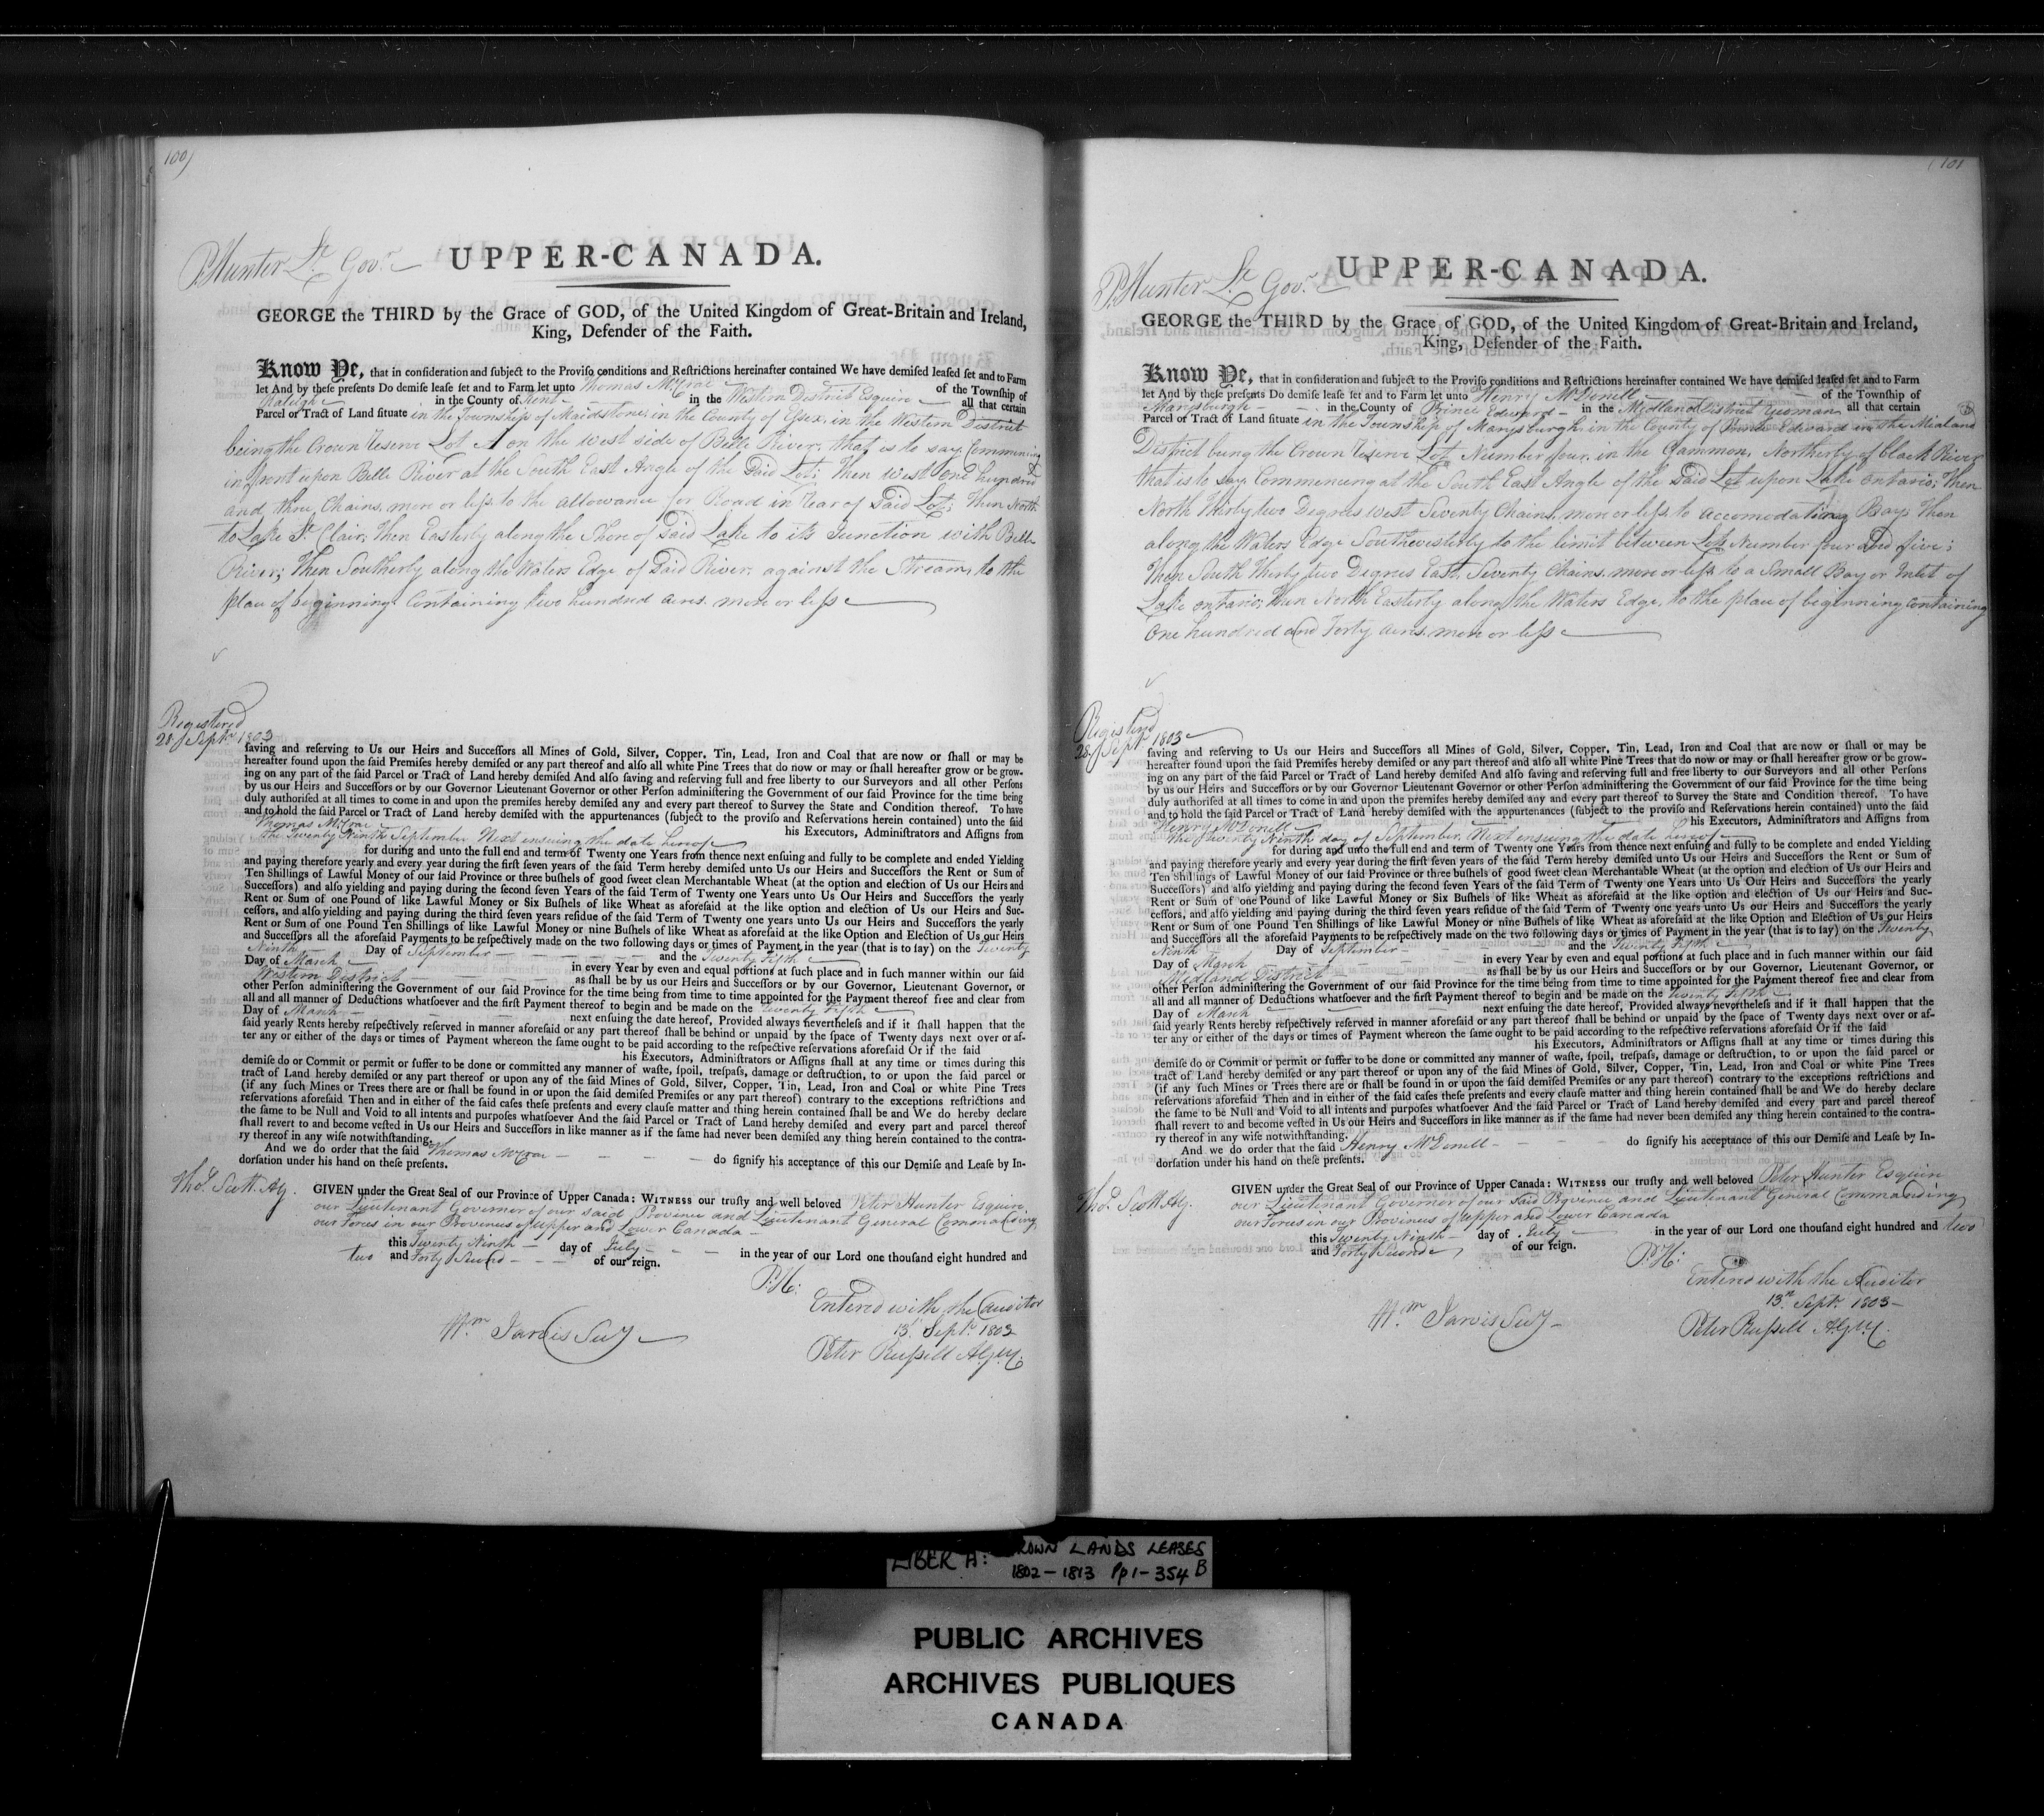 100)
P. Hunter Lt. Govr.
UPPER-CANADA.
GEORGE the THIRD by the Grace of GOD, of the United Kingdom of Great-Britain and Ireland,
King, Defender of the Faith.
Know Ye, that in consideration and subject to the Proviso conditions and Restrictions hereinafter contained We have demised leased set and to Farm
let And by these presents Do demise lease set and to Farm let unto Thomas McCrae of the Township of
Raleigh in the County of Kent in the Western District Esquire all that certain
Parcel or Tract of Land situate in the Township of Maidstone, in the County of Essex, in the Western District
being the Crown Reserve Lot A on the west side of Belle River, that is to say, Commencing
in front upon Belle River at the South East Angle of the Said Lot; Then west one hundred
and three Chains, more or less to the allowance for Road in rear of Said Lot; Then North
to Lake St. Clair; Then Easterly along the Shore of Said Lake to its Junction with Belle
River; Then Southerly along the Waters Edge of Said River, against the Stream, to the
place of beginning Containing two hundred acres more or less
Registered
28 Septr. 1803
saving and reserving to Us our Heirs and Successors all Mines of Gold, Silver, Copper, Tin, Lead, Iron and Coal that are now or shall or may be
hereafter found upon the said Premises hereby demised or any part thereof and also all white Pine Trees that do now or may or shall hereafter grow or be grow-
ing on any part of the said Parcel or Tract of Land hereby demised And also saving and reserving full and free liberty to our Surveyors and all other Persons
by us our Heirs and Successors or by our Governor Lieutenant Governor or other Person administering the Government of our said Province for the time being
duly authorised at all times to come in and upon the premises hereby demised any and every part thereof to Survey the State and Condition thereof. To have
and to hold the said Parcel or Tract of Land hereby demised with the appurtenances (subject to the proviso and Reservations herein contained) unto the said
Thomas McCrae his Executors, Administrators and Assigns from
the Twenty Ninth September Next ensuing the date hereof
for during and unto the full end and term of Twenty one Years from thence next ensuing and fully to be complete and ended Yielding
and paying therefore yearly and every year during the first seven years of the said Term hereby demised unto Us our Heirs and Successors the Rent or Sum of
Ten Shillings of Lawful Money of our said Province or three bushels of good sweet clean Merchantable Wheat (at the option and election of Us our Heirs and
Successors) and also yielding and paying during the second seven Years of the said Term of Twenty one Years unto Us Our Heirs and Successors the yearly
Rent or Sum of one Pound of like Lawful Money or Six Bushels of like Wheat as aforesaid at the like option and election of Us our Heirs and Suc-
cessors, and also yielding and paying during the third seven years residue of the said Term of Twenty one years unto Us our Heirs and Successors the yearly
Rent or Sum of one Pound Ten Shillings of like Lawful Money or nine Bushels of like Wheat as aforesaid at the like Option and Election of Us our Heirs
and Successors all the aforesaid Payments to be respectively made on the two following days or times of Payment in the year (that is to say) on the Twenty
Ninth Day of September and the Twenty Fifth
Day of March in every Year by even and equal portions at such place and in such manner within our said
Western District as shall be by us our Heirs and Successors or by our Governor, Lieutenant Governor, or
other Person administering the Government of our said Province for the time being from time to time appointed for the Payment thereof free and clear from
all and all manner of Deductions whatsoever and the first Payment thereof to begin and be made on the Twenty Fifth
Day of March next ensuing the date hereof, Provided always nevertheless and if it shall happen that the
said yearly Rents hereby respectively reserved in manner aforesaid or any part thereof shall be behind or unpaid by the space of Twenty days next over or af-
ter any or either of the days or times of Payment whereon the same ought to be paid according to the respective reservations aforesaid Or if the said
his Executors, Administrators or Assigns shall at any time or times during this
demise do or Commit or permit or suffer to be done or committed any manner of waste, spoil, trespass, damage or destruction, to or upon the said parcel or
tract of Land hereby demised or any part thereof or upon any of the said Mines of Gold, Silver, Copper, Tin, Lead, Iron and Coal or white Pine Trees
(if any such Mines or Trees there are or shall be found in or upon the said demised Premises or any part thereof) contrary to the exceptions restrictions and
reservations aforesaid Then and in either of the said cases these presents and every clause matter and thing herein contained shall be and We do hereby declare
the same to be Null and Void to all intents and purposes whatsoever And the said Parcel or Tract of Land hereby demised and every part and parcel thereof
shall revert to and become vested in Us our Heirs and Successors in like manner as if the same had never been demised any thing herein contained to the contra-
ry thereof in any wise notwithstanding.
And we do order that the said Thomas McCrae do signify his acceptance of this our Demise and Lease by In-
dorsation under his hand on these presents.
Thos. Scott. Ag.
GIVEN under the Great Seal of our Province of Upper Canada: WITNESS our trusty and well beloved Peter Hunter Esquire
our Lieutenant Governor of our said Province and Lieutenant General Commanding
our Forces in our Provinces of Upper and Lower Canada
this Twenty Ninth day of July in the year of our Lord one thousand eight hundred and
two and Forty Second of our reign.
P.H:
Entered with the Auditor
13th Septr. 1803
Wm. Jarvis Secy
Peter Russell A.G.
(101
P. Hunter Lt. Govr.
UPPER-CANADA.
GEORGE the THIRD by the Grace of GOD, of the United Kingdom of Great-Britain and Ireland,
King, Defender of the Faith.
Know Ye, that in consideration and subject to the Proviso conditions and Restrictions hereinafter contained We have demised leased set and to Farm
let And by these presents Do demise lease set and to Farm let unto Henry McDonell of the Township of
Marysburgh in the County of Prince Edward in the Midland District Yeoman all that certain
Parcel or Tract of Land situate in the Township of Marysburgh in the County of Prince Edward in the Midland
District being the Crown Reserve Lot Number four, in the Gammon, Northerly of black River
that is to say, Commencing at the South East Angle of the Said Lot upon Lake Ontario; Then
North Thirty two Degrees west Seventy Chains, more or less to accomodating Bay; Then
along the Waters Edge Southwesterly to the limit between Lots Number four and five;
Then South Thirty two Degrees East, Seventy Chains, more or less to a Small Bay or Inlet of
Lake Ontario; then North Easterly along the Waters Edge, to the place of beginning containing
One hundred and Forty acres more or less
Registered
28 Septr. 1803
saving and reserving to Us our Heirs and Successors all Mines of Gold, Silver, Copper, Tin, Lead, Iron and Coal that are now or shall or may be
hereafter found upon the said Premises hereby demised or any part thereof and also all white Pine Trees that do now or may or shall hereafter grow or be grow-
ing on any part of the said Parcel or Tract of Land hereby demised And also saving and reserving full and free liberty to our Surveyors and all other Persons
by us our Heirs and Successors or by our Governor Lieutenant Governor or other Person administering the Government of our said Province for the time being
duly authorised at all times to come in and upon the premises hereby demised any and every part thereof to Survey the State and Condition thereof. To have
and to hold the said Parcel or Tract of Land hereby demised with the appurtenances (subject to the proviso and Reservations herein contained) unto the said
Henry McDonell his Executors, Administrators and Assigns from
the Twenty Ninth day of September Next ensuing the date hereof
for during and unto the full end and term of Twenty one Years from thence next ensuing and fully to be complete and ended Yielding
and paying therefore yearly and every year during the first seven years of the said Term hereby demised unto Us our Heirs and Successors the Rent or Sum of
Ten Shillings of Lawful Money of our said Province or three bushels of good sweet clean Merchantable Wheat (at the option and election of Us our Heirs and
Successors) and also yielding and paying during the second seven Years of the said Term of Twenty one Years unto Us Our Heirs and Successors the yearly
Rent or Sum of one Pound of like Lawful Money or Six Bushels of like Wheat as aforesaid at the like option and election of Us our Heirs and Suc-
cessors, and also yielding and paying during the third seven years residue of the said Term of Twenty one years unto Us our Heirs and Successors the yearly
Rent or Sum of one Pound Ten Shillings of like Lawful Money or nine Bushels of like Wheat as aforesaid at the like Option and Election of Us our Heirs
and Successors all the aforesaid Payments to be respectively made on the two following days or times of Payment in the year (that is to say) on the Twenty
Ninth Day of September and the Twenty Fifth
Day of March in every Year by even and equal portions at such place and in such manner within our said
Midland District as shall be by us our Heirs and Successors or by our Governor, Lieutenant Governor, or
other Person administering the Government of our said Province for the time being from time to time appointed for the Payment thereof free and clear from
all and all manner of Deductions whatsoever and the first Payment thereof to begin and be made on the twenty Fifth
Day of March next ensuing the date hereof, Provided always nevertheless and if it shall happen that the
said yearly Rents hereby respectively reserved in manner aforesaid or any part thereof shall be behind or unpaid by the space of Twenty days next over or af-
ter any or either of the days or times of Payment whereon the same ought to be paid according to the respective reservations aforesaid Or if the said
his Executors, Administrators or Assigns shall at any time or times during this
demise do or Commit or permit or suffer to be done or committed any manner of waste, spoil, trespass, damage or destruction, to or upon the said parcel or
tract of Land hereby demised or any part thereof or upon any of the said Mines of Gold, Silver, Copper, Tin, Lead, Iron and Coal or white Pine Trees
(if any such Mines or Trees there are or shall be found in or upon the said demised Premises or any part thereof) contrary to the exceptions restrictions and
reservations aforesaid Then and in either of the said cases these presents and every clause matter and thing herein contained shall be and We do hereby declare
the same to be Null and Void to all intents and purposes whatsoever And the said Parcel or Tract of Land hereby demised and every part and parcel thereof
shall revert to and become vested in Us our Heirs and Successors in like manner as if the same had never been demised any thing herein contained to the contra-
ry thereof in any wise notwithstanding.
And we do order that the said Henry McDonell do signify his acceptance of this our Demise and Lease by In-
dorsation under his hand on these presents.
Thos. Scott Ag.
GIVEN under the Great Seal of our Province of Upper Canada: WITNESS our trusty and well beloved Peter Hunter Esquire
our Lieutenant Governor of our Said Province and Lieutenant General Commanding
our Forces in our Provinces of Upper and Lower Canada
this Twenty Ninth day of July in the year of our Lord one thousand eight hundred and two
and Forty Second of our reign.
P.H:
Entered with the Auditor
13th Septr. 1803
Wm. Jarvis Secy
Peter Russell A.G.
LIBER A: CROWN LANDS LEASES
1802-1813 Pp 1-354 B
PUBLIC ARCHIVES
ARCHIVES PUBLIQUES
CANADA